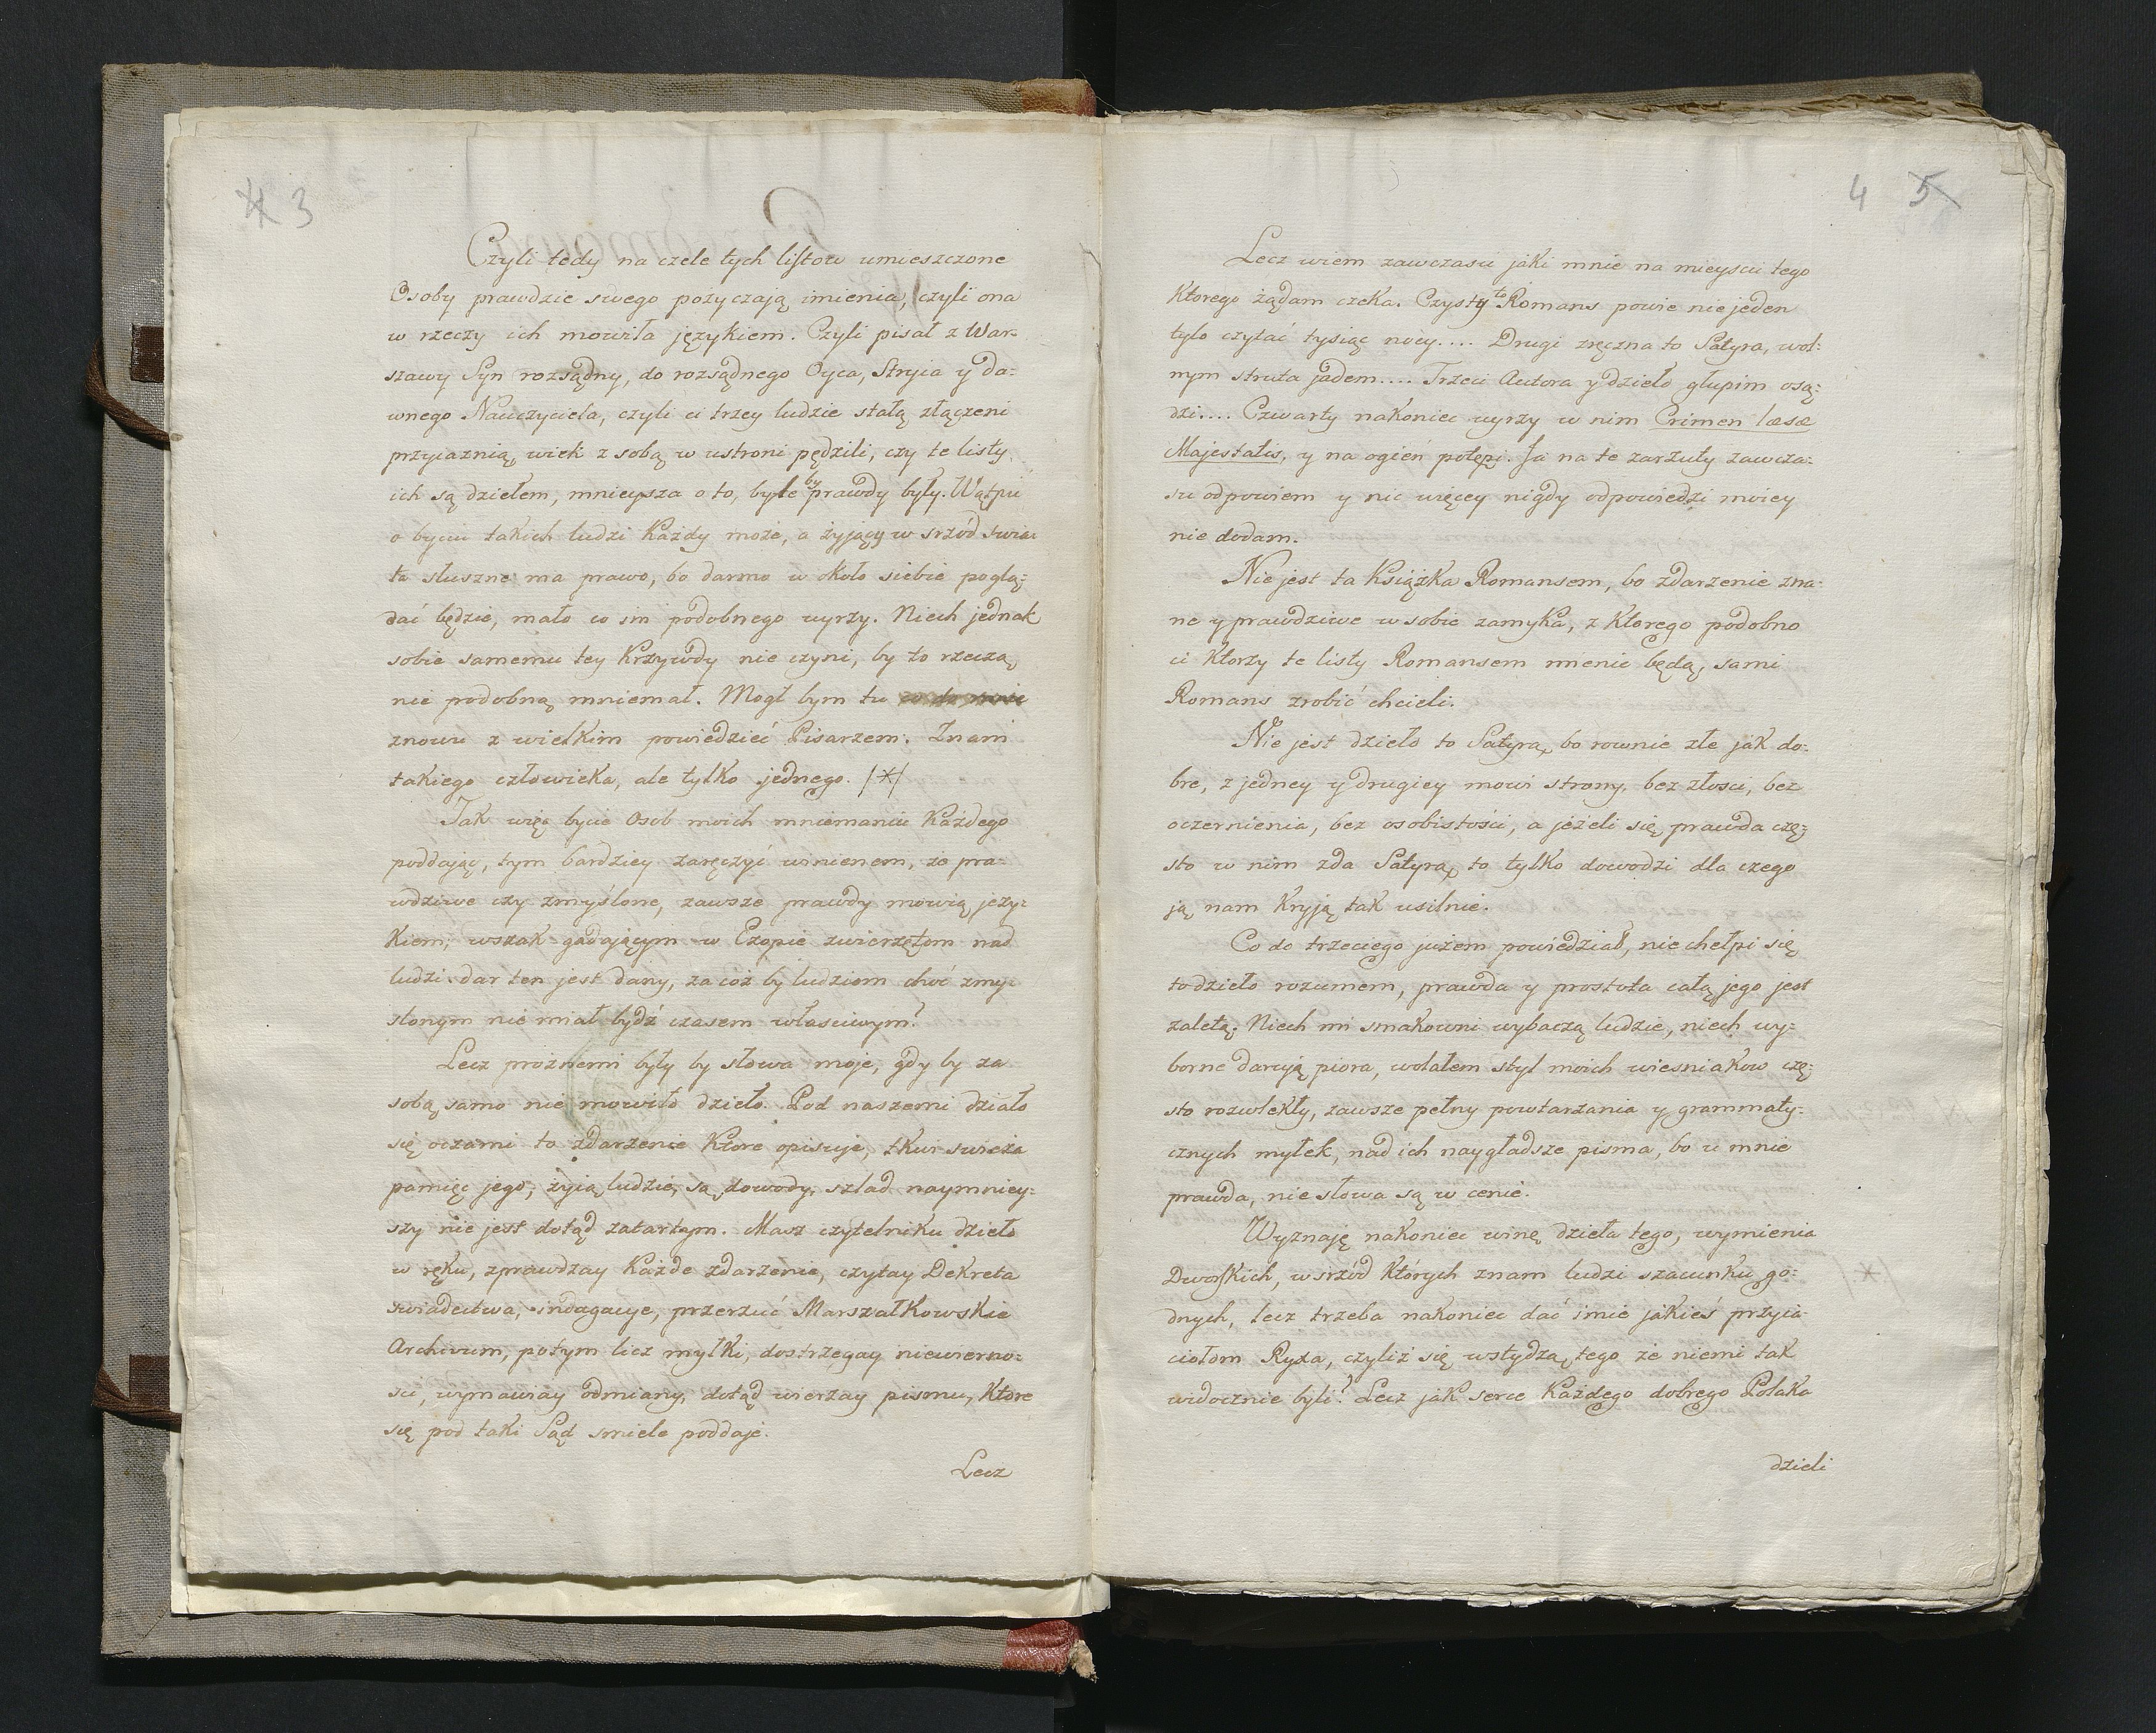 4 3
Czyli tedy na czele tych listow umieszczone
Osoby prawdzie swego pożyczają imienia, czyli ona
w rzeczy ich mowiła językiem. Czyli pisał z War-
szawy Syn rozsądny, do rozsądnego Oyca, Stryia y da-
wnego Nauczyciela, czyli ci trzey ludzie stałą złączeni
przyiaznią, wiek z sobą w ustroni pędzili, czy te listy
ich są dziełem, mnieysza o to, byle by prawdy były. Wątpić
o byciu takich ludzi Każdy może, a żyjący w srzód swia-
ta słuszne ma prawo, bo darmo w około siebie poglą-
dać będzie, mało co im podobnego uyrzy. Niech jednak
sobie samemu tey Krzywdy nie czyni, by to rzeczą
nie podobną mniemał. Mogł bym tu
znowu z wielkim powiedzieć Pisarzem: Znam
takiego człowieka, ale tylko jednego. (*)
Tak więc bycie Osob moich mniemaniu Każdego
poddając, tym bardziey zaręczyć winienem, że pra-
wdziwe czy zmyślone, zawsze prawdy mowią języ-
kiem; wszak gadającym w Ezopie zwierzętom nad
ludzi dar ten jest dany, za coż by ludziom choć zmy-
slonym nie miał bydź czasem własciwym?
Lecz prożnemi były by słowa moje, gdy by za
sobą samo nie mowiło dzieło. Pod naszemi działo
się oczami to zdarzenie Które opisuje, tkwi swieża
pamięć jego; żyią ludzie, są dowody, szlad naymniey-
szy nie jest dotąd zatartym. Masz czytelniku dzieło
w ręku, zprawdzay Każde zdarzenie, czytay Dekreta
swiadectwa, indagacye, przerzuć Marszałkowskie
Archivum, potym licz myłki, dostrzegay niewierno-
sci, wymawiay odmiany, dotąd wierzay pismu, Które
się pod taki Sąd smiele poddaje.
Lecz
4 5
Lecz wiem zawczasu jaki mnie na mieyscu tego
Ktorego żądam czeka. Czysty to Romans powie nie jeden
tylo czytać tysiąc nocy.... Drugi zręczna to Satyra, wol-
nym struta jadem.... Trzeci Autora y dzieło głupim osą-
dzi.... Czwarty nakoniec uyrzy w nim Crimen læsæ
Majestatis, y na ogień potępi. Ja na te zarzuty zawcza-
su odpowiem y nic więcey nigdy odpowiedzi moiey
nie dodam.
Nie jest ta Książka Romansem, bo zdarzenie zna-
ne y prawdziwe w sobie zamyka, z Ktorego podobno
ci Ktorzy te listy Romansem mienić będą, sami
Romans zrobić chcieli.
Nie jest dzieło to Satyrą, bo rownie złe jak do-
bre, z jedney y drugiey mowi strony, bez złosci, bez
oczernienia, bez osobistości, a jeżeli się prawda czę-
sto w nim zda Satyrą, to tylko dowodzi dla czego
ją nam Kryją tak usilnie.
Co do trzeciego jużem powiedział, nie chełpi się
to dzieło rozumem, prawda y prostota całą jego jest
zaletą. Niech mi smakowni wybaczą ludzie, niech wy-
borne darują piora, wolałem styl moich wiesniakow czę-
sto rozwlekły, zawsze pełny powtarzania y grammaty-
cznych myłek, nad ich naygładsze pisma, bo u mnie
prawda, nie słowa są w cenie.
Wyznaję nakoniec winę dzieła tego, wymienia
Dworskich, w srzód Których znam ludzi szacunku go-
dnych, lecz trzeba nakoniec dać imie jakieś przyia-
ciołom Ryxa, czyliż się wstydzą tego że niemi tak
widocznie byli? Lecz jak serce Każdego dobrego Polaka
dzieli